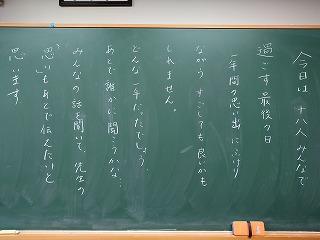 今日は 十八人 みんなで
過ごす 最後の日
一年間の思い出にふけり
ながら すごしても良いかも
しれません。
どんな一年だったでしょう…
あとで誰かに聞こうかな…
みんなの話を聞いて、先生の
"思い"もあとで伝えたいと
思います